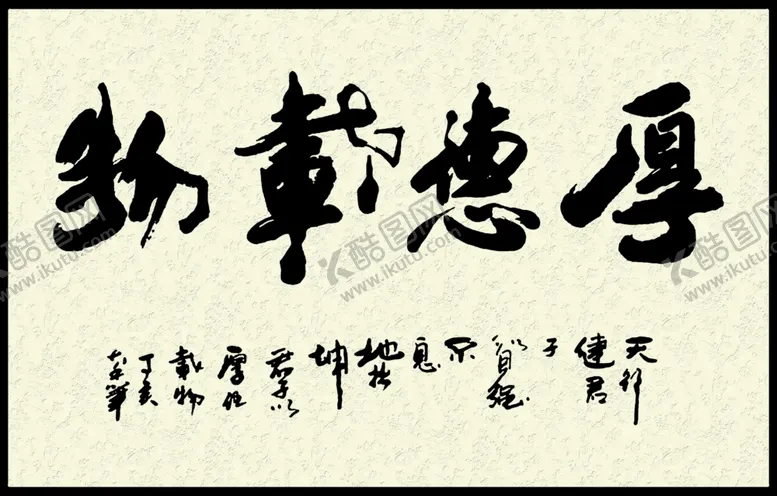 厚德載物
天行
健君
子
以自强
不
息
地势
坤
君子以
厚德
載物
丁亥
酷图网
www.ikutu.com
酷图网
www.ikutu.com
酷图网
www.ikutu.com